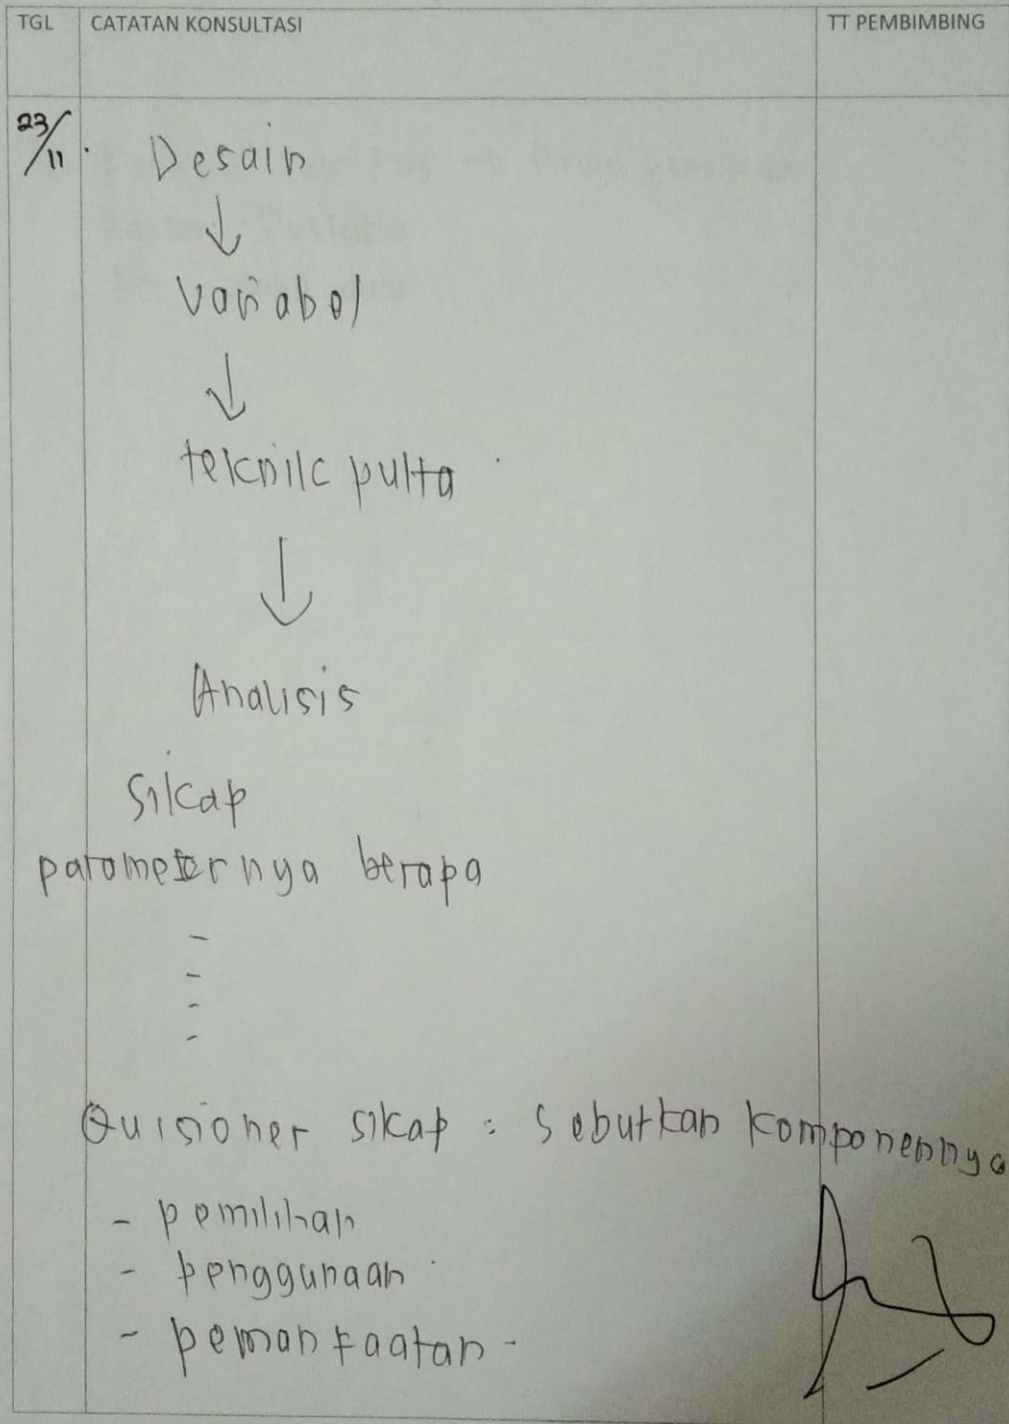 TGL CATATAN KONSULTASI TT PEMBIMBING
23/11. Desain
↓
Variabel
↓
teknik pulta
↓
Analisis
Sikap
parameternya berapa
-
-
-
-
Quisioner sikap : sebutkan komponennya
- pemilihan
- penggunaan
- pemanfaatan -